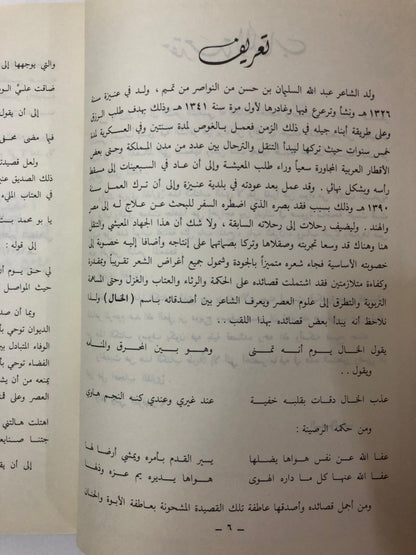 تعريف
ولد الشاعر عبد الله السليمان بن حسن من النواصر من تميم ، ولد في عنيزة سنة
١٣٢٦ هـ ونشأ وترعرع فيها وغادرها لأول مرة سنة ١٣٤١ هـ وذلك بهدف طلب الرزق
وعلى طريقة أبناء جيله في ذلك الزمن فعمل بالغوص لمدة سنتين وفي العسكرية لمدة
خمس سنوات حيث تركها ليبدأ التنقل والترحال بين عدد من مدن المملكة وحتى بعض
الأقطار العربية المجاورة سعياً وراء طلب المعيشة إلى أن عاد في السبعينات إلى مسقط
رأسه وبشكل نهائي . وقد عمل بعد عودته في بلدية عنيزة إلى أن ترك العمل سنة
١٣٩٠ هـ وذلك بسبب فقد بصره الذي اضطره السفر للبحث عن علاج له إلى مصر
والهند . وليضيف رحلات إلى رحلاته السابقة ، ولا شك أن هذا الجهاد المعيشي والتنقل
هنا وهناك قد وسعا تجربته وصقلاها وتركا بصماتهما على إنتاجه وأضافا إليه خصوبة إلى
خصوبته الأساسية فجاء شعره متميزاً بالجودة والشمول لجميع أغراض الشعر تقريباً وبمقدرة
وكفاءة متلازمتين فقد اشتملت قصائده على الحكمة والرثاء والعتاب والغزل وحتى السلامة
التربوية والتطرق إلى علوم العصر ويعرف الشاعر بين أصدقائه باسم ( الخال ) ولذا
نلاحظ أنه يبدأ بعض قصائده بهذا اللقب . .
يقول الخال يوم أنه تمنى وهو بين المحرق والمنامه
ويقول . .
عذب الخال دقات بقلبه خفية عند غيري وعندي كنه النجم هاوي
ومن حكمه الرصينة :
عفا الله عن نفس هواها يضلها يسير القدم بأمره ويمشي أرضا لها
عفا الله عنها كل ما داره الهوى هواها يديره يم عزه وذلها
ومن أجمل قصائده وأصدقها عاطفة تلك القصيدة المشحونة بعاطفة الأبوة والحنان
– ٦ –
والتي يوجهها إلى
ضاقت عليّ
إلى أن يقول
فها مضى
ولعل قصيدته
ذلك الصديق
في العتاب
يا بو حمد
إلى قوله :
لي حق يوم
حيث المواصل
وبما أن
الديوان توحي
الوفاء المتبادل بين
القضاء توحي
يمنعه من أن
العصر وعلى
اهتلت هالتي
جتنا صنايع
إلى أن